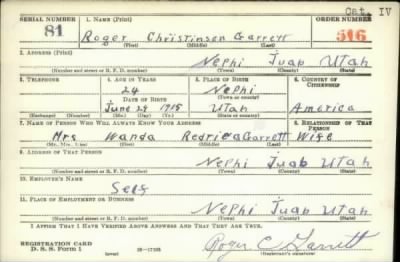 Cat. IV
SERIAL NUMBER 1. NAME (Print) ORDER NUMBER
81 Roger Christinson Garrett 516
(First) (Middle) (Last)
2. ADDRESS (Print)
Nephi Juab Utah
(Number and street or R. F. D. number) (Town) (County) (State)
3. TELEPHONE 4. AGE IN YEARS 5. PLACE OF BIRTH 6. COUNTRY OF CITIZENSHIP
24 Nephi
DATE OF BIRTH (Town or county)
June 29 1915 Utah America
(Exchange) (Number) (Mo.) (Day) (Yr.) (State or country)
7. NAME OF PERSON WHO WILL ALWAYS KNOW YOUR ADDRESS 8. RELATIONSHIP OF THAT PERSON
Mrs Wanda Garrett Wife
(Mr., Mrs., Miss) (First) (Middle) (Last)
9. ADDRESS OF THAT PERSON
Nephi Juab Utah
(Number and street or R. F. D. number) (Town) (County) (State)
10. EMPLOYER'S NAME
Self
11. PLACE OF EMPLOYMENT OR BUSINESS
Nephi Juab Utah
(Number and street or R. F. D. number) (Town) (County) (State)
I AFFIRM THAT I HAVE VERIFIED ABOVE ANSWERS AND THAT THEY ARE TRUE.
REGISTRATION CARD
D. S. S. Form 1 16-17105 (over) Roger C Garrett
(Registrant's signature)